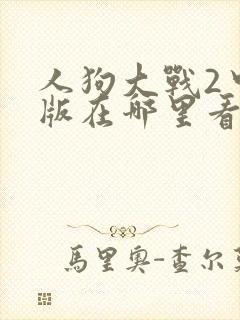 人狗大戰2
版在哪里看
馬里奧-查尔